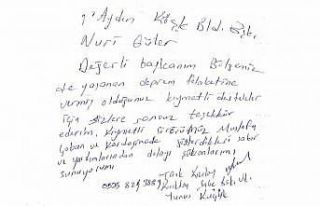 Aydın Köşk Bld. Bşk.
Nuri Güler
Değerli başkanım Bölgemiz
de yaşanan deprem felaketine
vermiş olduğunuz kıymetli destekler
için sizlere sonsuz teşekkür
ederim. Kıymetli Mustafa
Çoban ve Kardeşimde gösterdikleri sabır
ve yardımlarından dolayı şükranlarımı
sunuyorum
Tarık
0505
Yunus